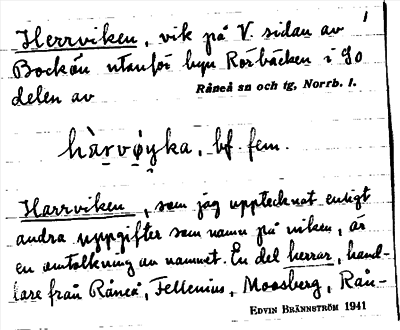 1
Herrviken, vik på V. sidan av
Bockön utanför byn Rörbäcken i SO
delen av Råneå sn och tg, Norrb. l.
hàrvøyka, bf. fem.
Harrviken, som jag upptecknat enligt
andra uppgifter som namn på viken, är
en omtolkning av namnet. En del herrar, hand-
lare från Råneå, Fellenius, Moosberg, Rån-
EDVIN BRÄNNSTRÖM 1941